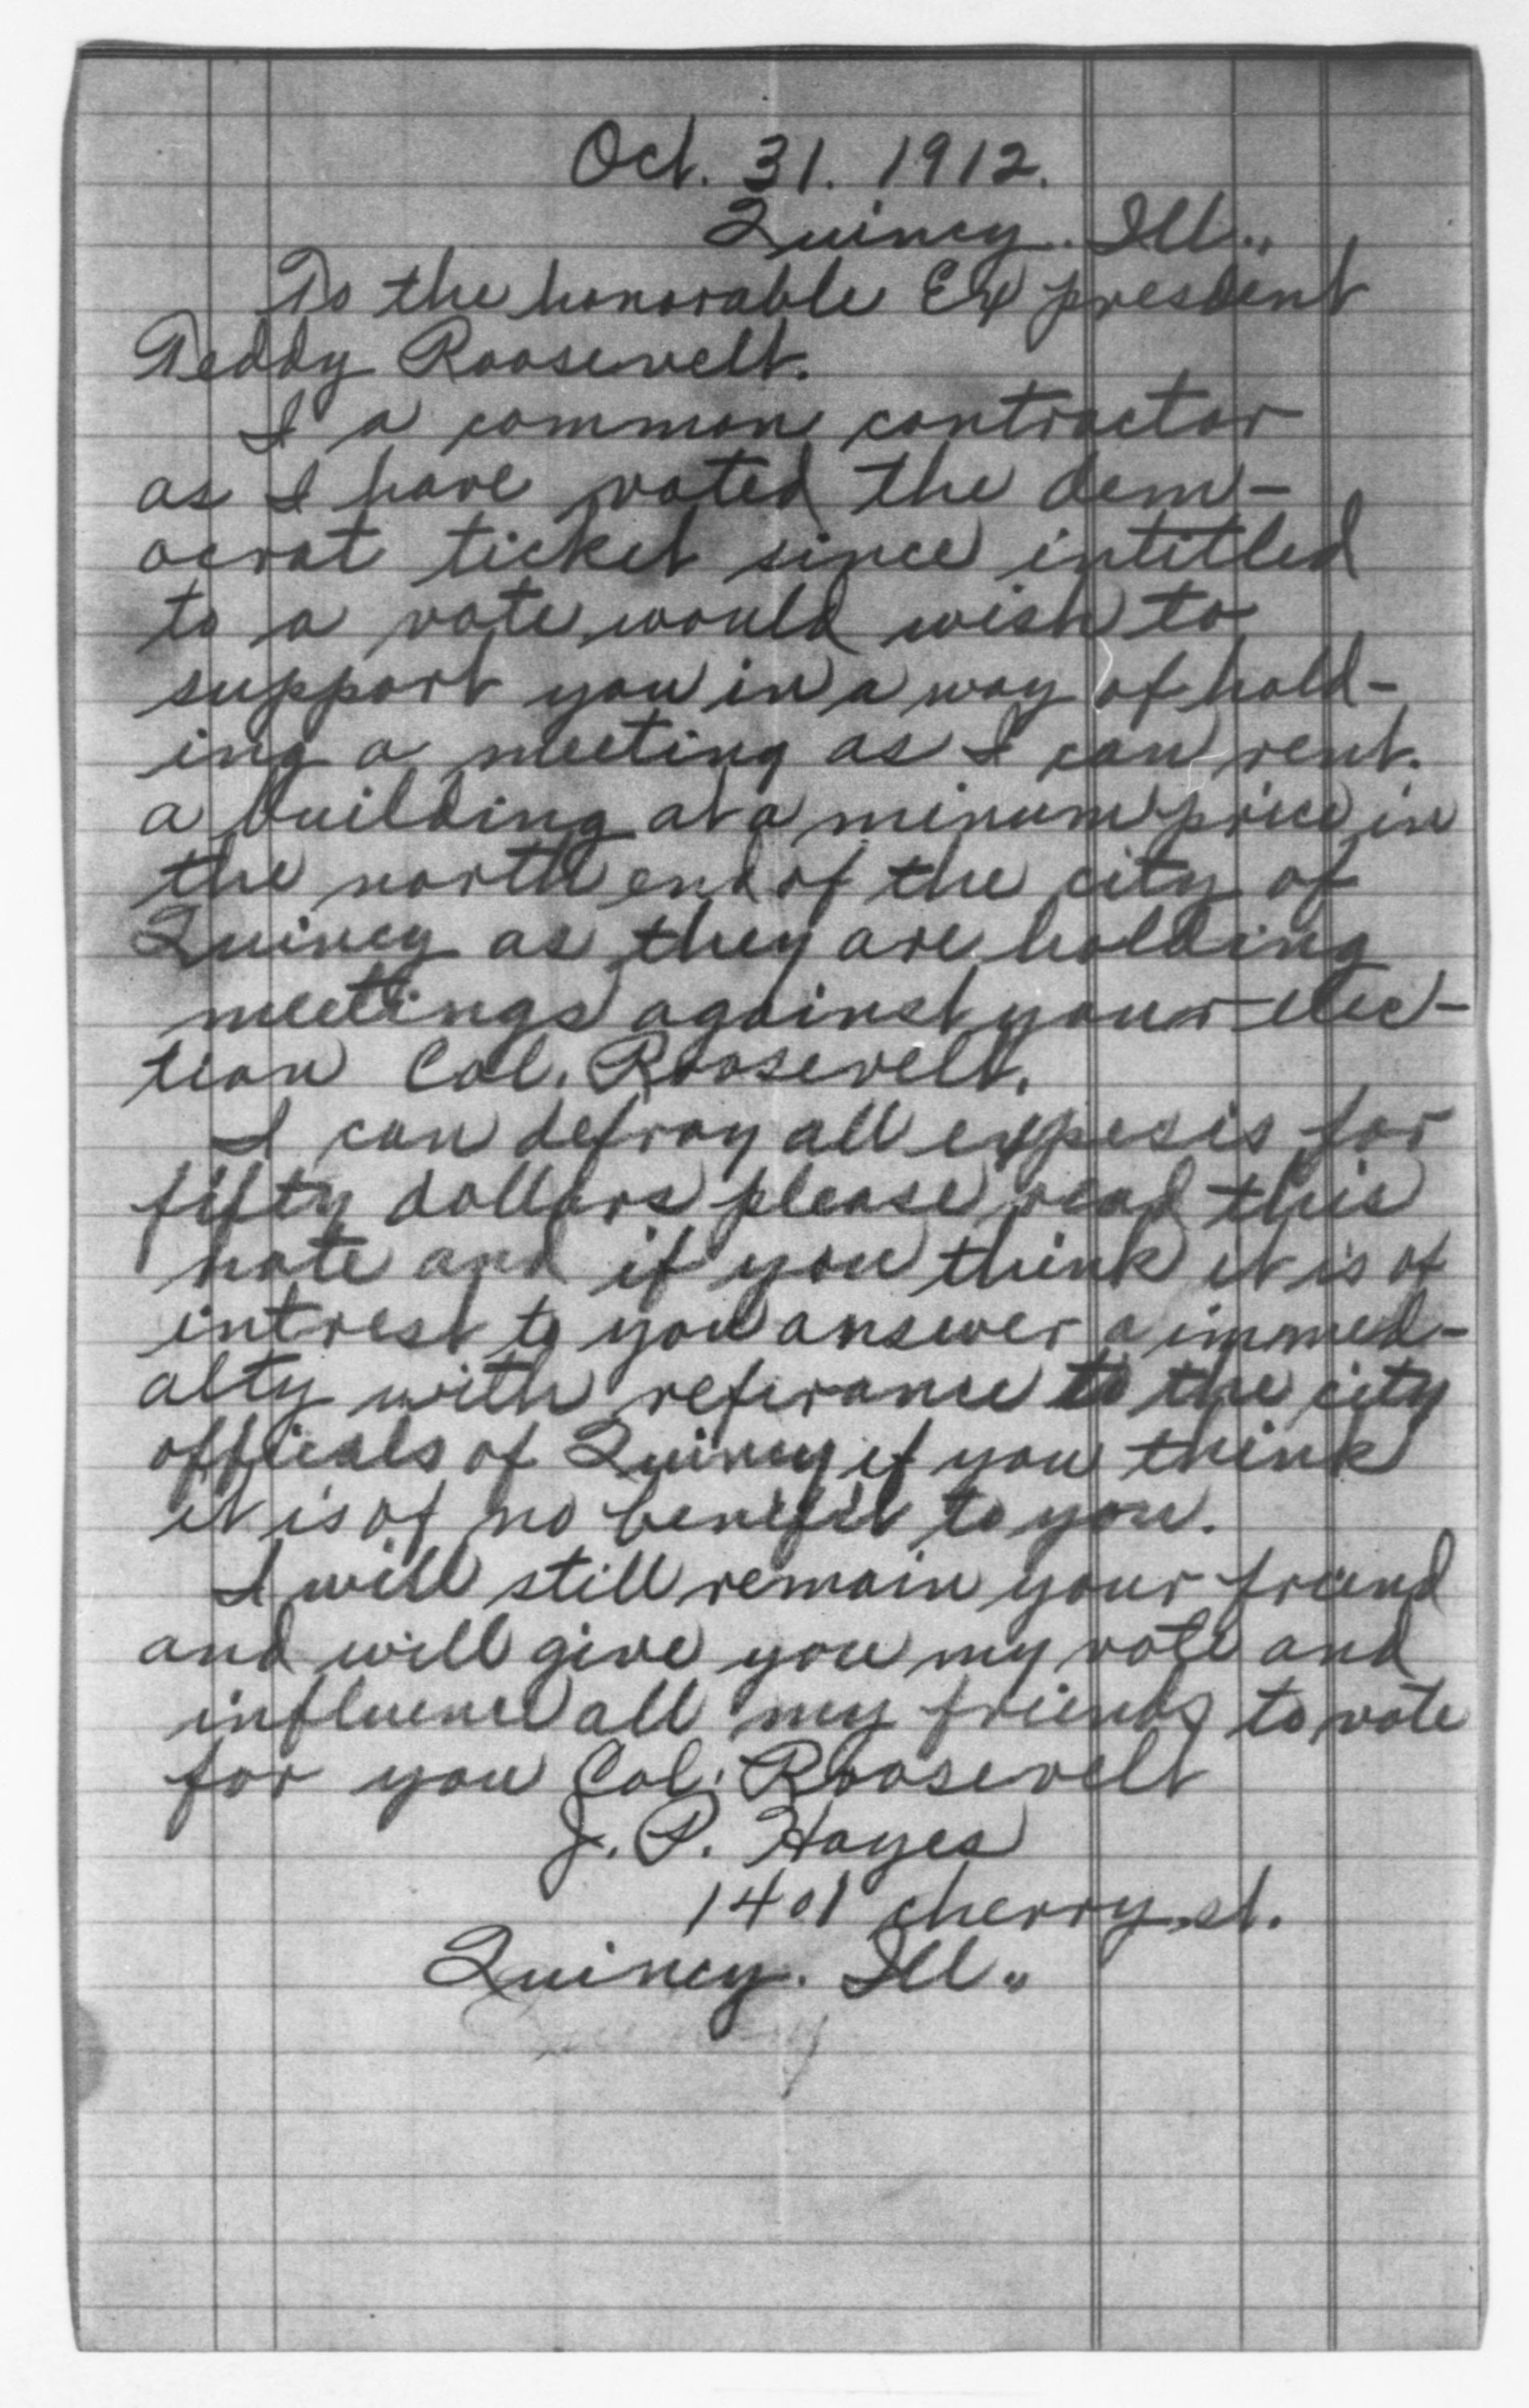 Oct. 31. 1912.
Quincy. Ill..
To the honorable Ex president
Teddy Roosevelt.
I a common contractor
as I have voted the dem-
ocrat ticket since intitled
to a vote would wish to
support you in a way of hold-
ing a meeting as I can rent.
a building at a minum price in
the north end of the city of
Quincy as they are holding
meetings against your elec-
tion Col. Roosevelt.
I can defray all expesis for
fifty dollars please read this
note and if you think it is of
intrest to you answer a immed-
alty with referance to the city
officals of Quincy if you think
it is of no benefit to you.
I will still remain your friend
and will give you my vote and
influence all my friends to vote
for you Col. Roosevelt
J. P. Hayes
1401 cherry. st.
Quincy. Ill..